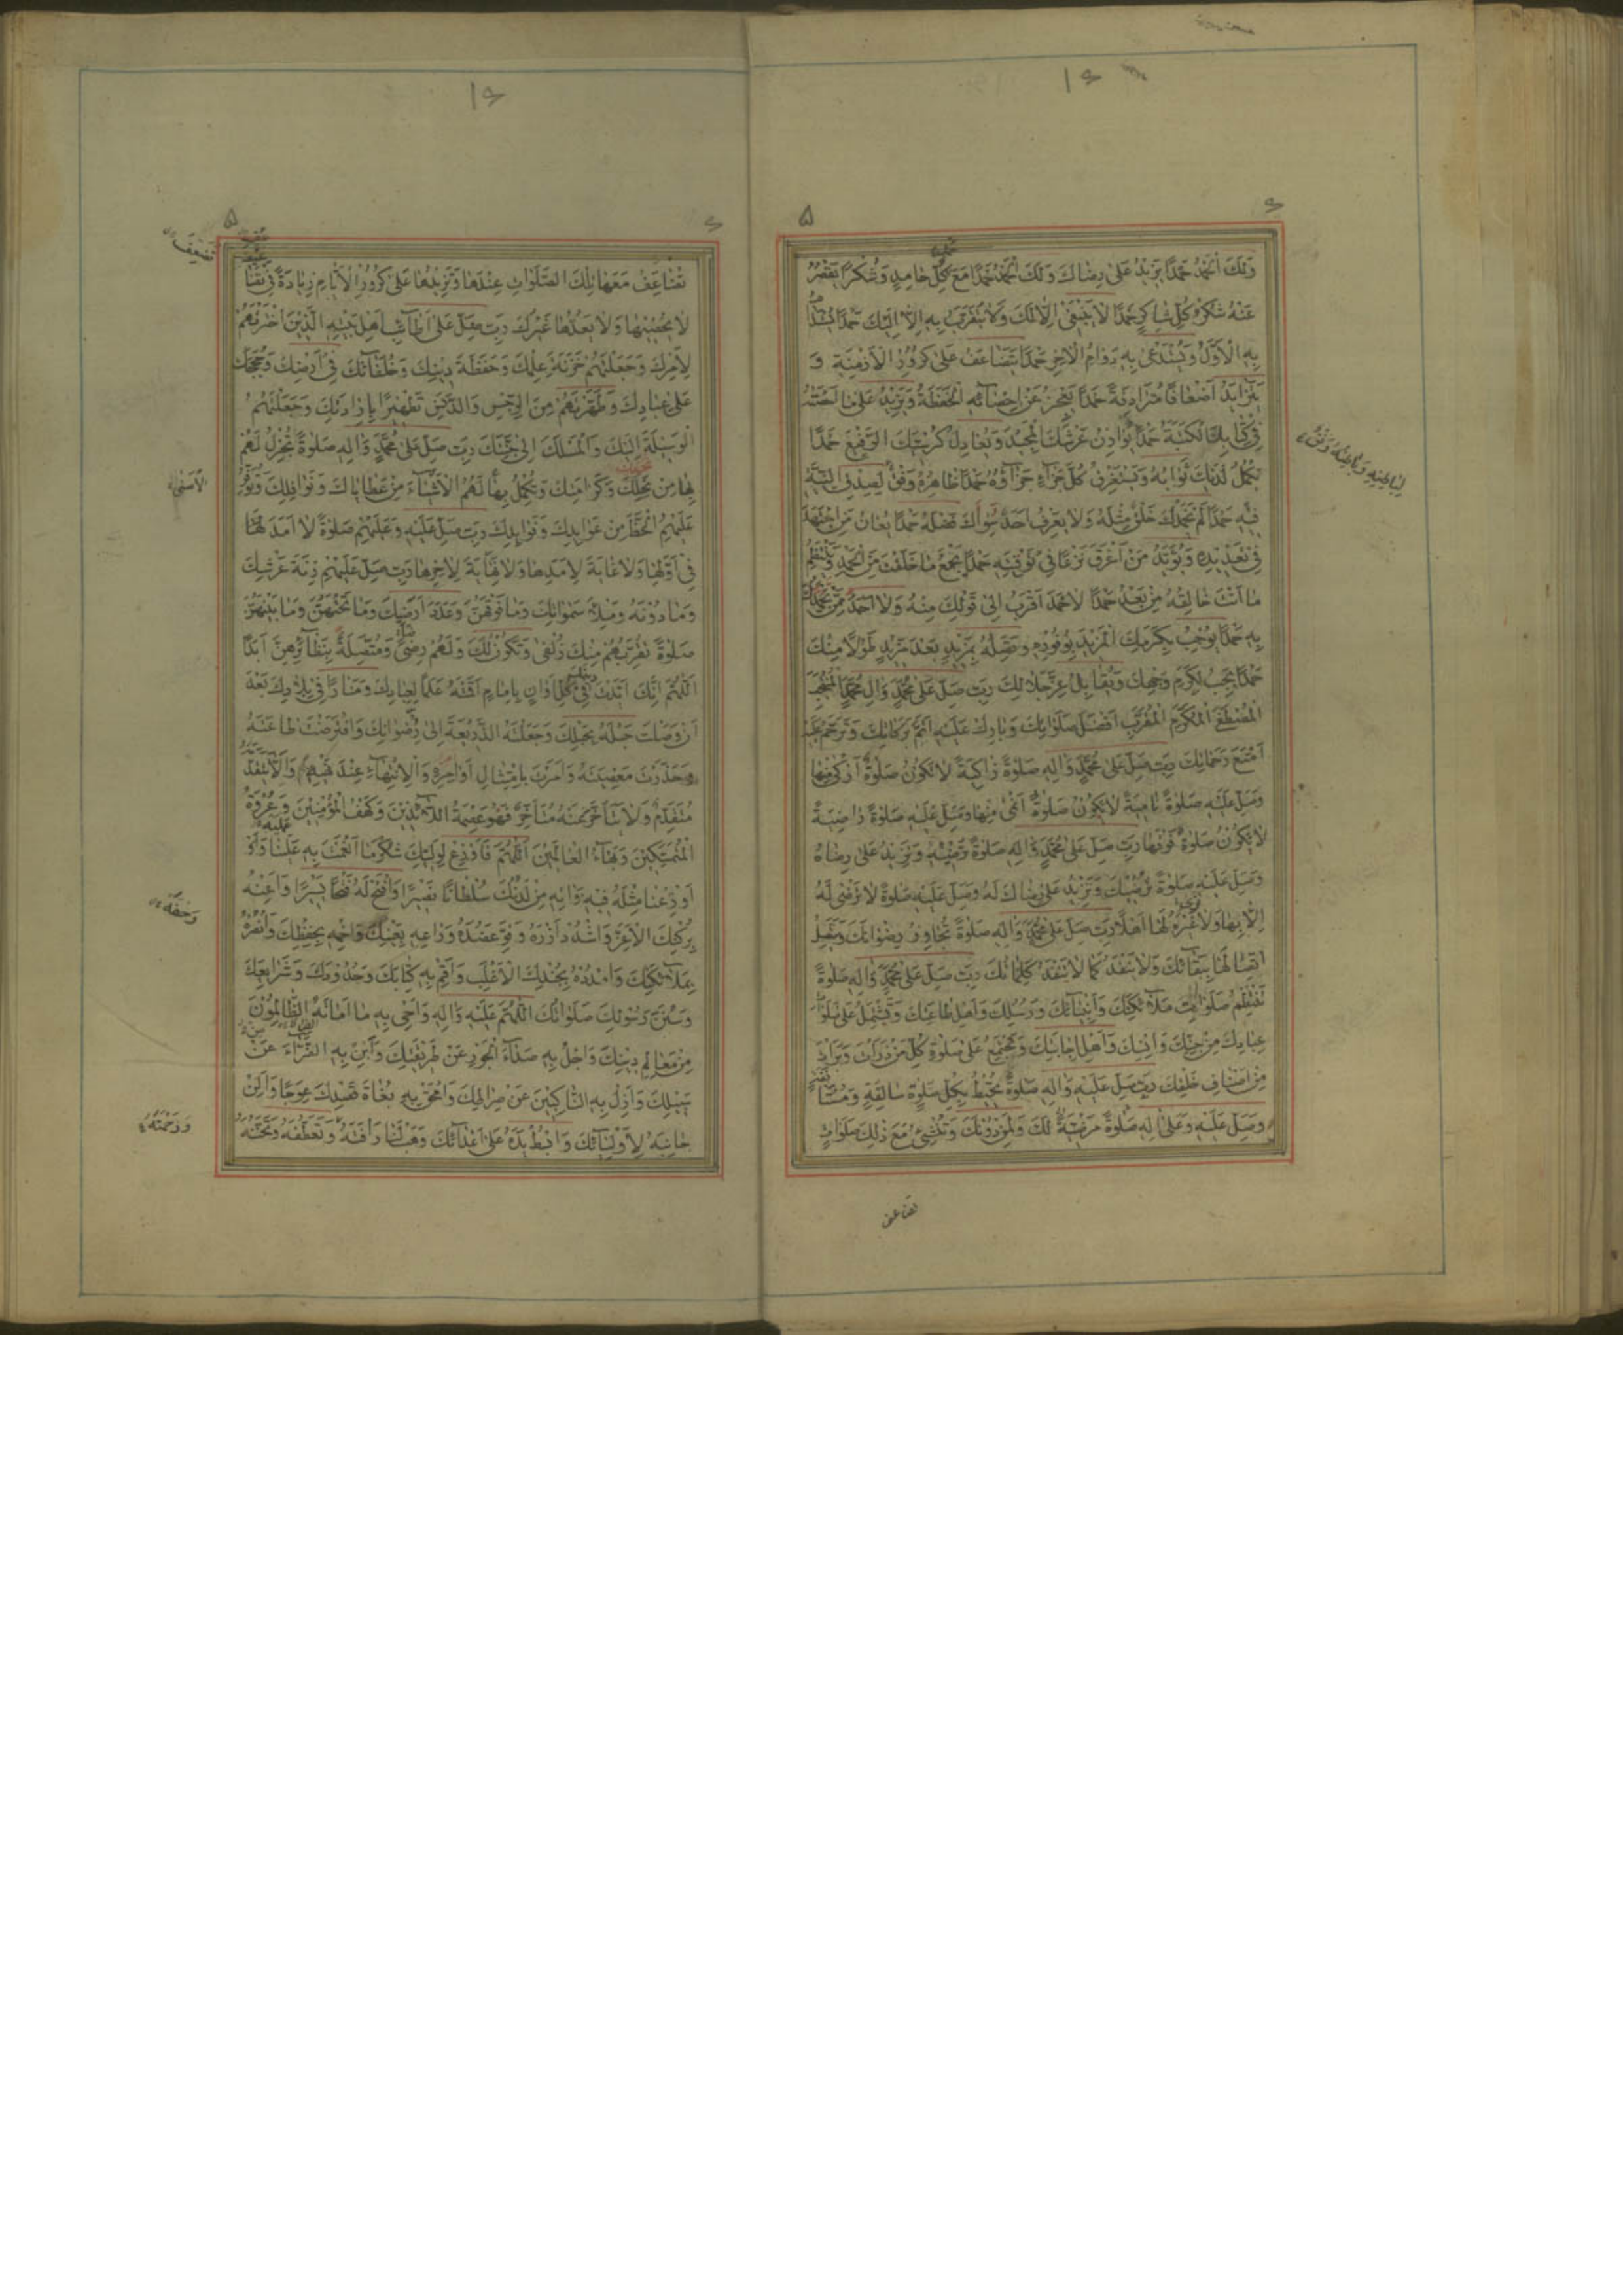 وَلَكَ الْحَمْدُ حَمْدًا يَزِيْدُ عَلىٰ رِضَاكَ وَلَكَ الْحَمْدُ حَمْدًا مَعَ كُلِّ حَامِدٍ وَشُكْرًا يَقْصُرُ
عَنْهُ شُكْرُ كُلِّ شَاكِرٍ حَمْدًا لَا يَنْبَغِيْ اِلَّا لَكَ وَلَا يُتَقَرَّبُ بِهِ اِلَّا اِلَيْكَ حَمْدًا يُسْتَدَامُ
بِهِ الْاَوَّلُ وَيُسْتَدْعىٰ بِهِ دَوَامُ الْاٰخِرِ حَمْدًا يَتَضَاعَفُ عَلىٰ كُرُوْرِ الْاَزْمِنَةِ وَ
يَتَزَايَدُ اَضْعَافًا مُتَرَادِفَةً حَمْدًا يَعْجِزُ عَنْ اِحْصَائِهِ الْحَفَظَةُ وَيَزِيْدُ عَلىٰ مَا اَحْصَتْهُ
فِيْ كِتَابِكَ الْكَتَبَةُ حَمْدًا يُوَازِنُ عَرْشَكَ الْمَجِيْدَ وَيُعَادِلُ كُرْسِيَّكَ الرَّفِيْعَ حَمْدًا
يَكْمُلُ لَدَيْكَ ثَوَابُهُ وَيَسْتَغْرِقُ كُلَّ جَزَاءٍ جَزَاؤُهُ حَمْدًا ظَاهِرُهُ وَفْقٌ لِصِدْقِ النِّيَّةِ
فِيْهِ حَمْدًا لَمْ يَحْمَدْكَ خَلْقٌ مِثْلَهُ وَلَا يَعْرِفُ اَحَدٌ سِوَاكَ فَضْلَهُ حَمْدًا يُعَانُ مَنِ اجْتَهَدَ
فِيْ تَعْدِيْدِهِ وَيُؤَيَّدُ مَنْ اَغْرَقَ نَزْعًا فِيْ تَوْفِيَتِهِ حَمْدًا يَجْمَعُ مَا خَلَقْتَ مِنَ الْحَمْدِ وَيَنْتَظِمُ
مَا اَنْتَ خَالِقُهُ مِنْ بَعْدُ حَمْدًا لَا حَمْدَ اَقْرَبُ اِلىٰ قَوْلِكَ مِنْهُ وَلَا اَحْمَدَ مِمَّنْ يَحْمَدُكَ
بِهِ حَمْدًا يُوْجِبُ بِكَرَمِكَ الْمَزِيْدَ بِوُفُوْرِهِ وَتَصِلُهُ بِمَزِيْدٍ بَعْدَ مَزِيْدٍ طَوْلًا مِنْكَ
حَمْدًا يَجِبُ لِكَرَمِ وَجْهِكَ وَيُقَابِلُ عِزَّ جَلَالِكَ رَبِّ صَلِّ عَلىٰ مُحَمَّدٍ وَاٰلِ مُحَمَّدٍ الْمُنْتَجَبِ
الْمُصْطَفَى الْمُكَرَّمِ الْمُقَرَّبِ اَفْضَلَ صَلَوَاتِكَ وَبَارِكْ عَلَيْهِ اَتَمَّ بَرَكَاتِكَ وَتَرَحَّمْ عَلَيْهِ
اَمْتَعَ رَحَمَاتِكَ رَبِّ صَلِّ عَلىٰ مُحَمَّدٍ وَاٰلِهِ صَلوٰةً زَاكِيَةً لَا تَكُوْنُ صَلوٰةٌ اَزْكىٰ مِنْهَا
وَصَلِّ عَلَيْهِ صَلوٰةً نَامِيَةً لَا تَكُوْنُ صَلوٰةٌ اَنْمىٰ مِنْهَا وَصَلِّ عَلَيْهِ صَلوٰةً رَاضِيَةً
لَا تَكُوْنُ صَلوٰةٌ فَوْقَهَا رَبِّ صَلِّ عَلىٰ مُحَمَّدٍ وَاٰلِهِ صَلوٰةً تُرْضِيْهِ وَتَزِيْدُ عَلىٰ رِضَاهُ
وَصَلِّ عَلَيْهِ صَلوٰةً تُرْضِيْكَ وَتَزِيْدُ عَلىٰ رِضَاكَ لَهُ وَصَلِّ عَلَيْهِ صَلوٰةً لَا تَرْضىٰ لَهُ
اِلَّا بِهَا وَلَا تَرىٰ غَيْرَهُ لَهَا اَهْلًا رَبِّ صَلِّ عَلىٰ مُحَمَّدٍ وَاٰلِهِ صَلوٰةً تُجَاوِزُ رِضْوَانَكَ وَيَتَّصِلُ
اتِّصَالُهَا بِبَقَائِكَ وَلَا يَنْفَدُ كَمَا لَا تَنْفَدُ كَلِمَاتُكَ رَبِّ صَلِّ عَلىٰ مُحَمَّدٍ وَاٰلِهِ صَلوٰةً
تَنْتَظِمُ صَلَوَاتِ مَلَائِكَتِكَ وَاَنْبِيَائِكَ وَرُسُلِكَ وَاَهْلِ طَاعَتِكَ وَتَشْتَمِلُ عَلىٰ صَلَوَاتِ
عِبَادِكَ مِنْ جِنِّكَ وَاِنْسِكَ وَاَهْلِ اِجَابَتِكَ وَتَجْتَمِعُ عَلىٰ صَلوٰةِ كُلِّ مَنْ ذَرَاْتَ وَبَرَاْتَ
مِنْ اَصْنَافِ خَلْقِكَ رَبِّ صَلِّ عَلَيْهِ وَاٰلِهِ صَلوٰةً تُحِيْطُ بِكُلِّ صَلوٰةٍ سَالِفَةٍ وَمُسْتَأْنَفَةٍ
وَصَلِّ عَلَيْهِ وَعَلىٰ اٰلِهِ صَلوٰةً مَرْضِيَّةً لَكَ وَلِمَنْ دُوْنَكَ وَتُنْشِئُ مَعَ ذٰلِكَ صَلَوَاتٍ
تضاعف
تُضَاعِفُ مَعَهَا تِلْكَ الصَّلَوَاتِ عِنْدَهَا وَتَزِيْدُهَا عَلىٰ كُرُوْرِ الْاَيَّامِ زِيَادَةً فِيْ تَضَاعِيْفَ
لَا يُحْصِيْهَا وَلَا يَعُدُّهَا غَيْرُكَ رَبِّ صَلِّ عَلىٰ اَطَائِبِ اَهْلِ بَيْتِهِ الَّذِيْنَ اخْتَرْتَهُمْ
لِاَمْرِكَ وَجَعَلْتَهُمْ خَزَنَةَ عِلْمِكَ وَحَفَظَةَ دِيْنِكَ وَخُلَفَائَكَ فِيْ اَرْضِكَ وَحُجَجَكَ
عَلىٰ عِبَادِكَ وَطَهَّرْتَهُمْ مِنَ الرِّجْسِ وَالدَّنَسِ تَطْهِيْرًا بِاِرَادَتِكَ وَجَعَلْتَهُمُ
الْوَسِيْلَةَ اِلَيْكَ وَالْمَسْلَكَ اِلىٰ جَنَّتِكَ رَبِّ صَلِّ عَلىٰ مُحَمَّدٍ وَاٰلِهِ صَلوٰةً تُجْزِلُ لَهُمْ
بِهَا مِنْ نِحَلِكَ وَكَرَامَتِكَ وَتُكْمِلُ بِهَا لَهُمُ الْاَشْيَاءَ مِنْ عَطَايَاكَ وَنَوَافِلِكَ وَتُوَفِّرُ
عَلَيْهِمُ الْحَظَّ مِنْ عَوَائِدِكَ وَفَوَائِدِكَ رَبِّ صَلِّ عَلَيْهِ وَعَلَيْهِمْ صَلوٰةً لَا اَمَدَ لَهَا
فِيْ اَوَّلِهَا وَلَا غَايَةَ لِاَمَدِهَا وَلَا نِهَايَةَ لِاٰخِرِهَا رَبِّ صَلِّ عَلَيْهِمْ زِنَةَ عَرْشِكَ
وَمَا دُوْنَهُ وَمِلْاَ سَمٰوَاتِكَ وَمَا فَوْقَهُنَّ وَعَدَدَ اَرَضِيْكَ وَمَا تَحْتَهُنَّ وَمَا بَيْنَهُنَّ
صَلوٰةً تُقَرِّبُهُمْ مِنْكَ زُلْفىٰ وَتَكُوْنُ لَكَ وَلَهُمْ رِضىً وَمُتَّصِلَةً بِنَظَائِرِهِنَّ اَبَدًا
اَللّٰهُمَّ اِنَّكَ اَيَّدْتَ دِيْنَكَ فِيْ كُلِّ اَوَانٍ بِاِمَامٍ اَقَمْتَهُ عَلَمًا لِعِبَادِكَ وَمَنَارًا فِيْ بِلَادِكَ بَعْدَ
اَنْ وَصَلْتَ حَبْلَهُ بِحَبْلِكَ وَجَعَلْتَهُ الذَّرِيْعَةَ اِلىٰ رِضْوَانِكَ وَافْتَرَضْتَ طَاعَتَهُ
وَحَذَّرْتَ مَعْصِيَتَهُ وَاَمَرْتَ بِامْتِثَالِ اَوَامِرِهِ وَالْاِنْتِهَاءِ عِنْدَ نَهْيِهِ وَاَلَّا يَتَقَدَّمَهُ
مُتَقَدِّمٌ وَلَا يَتَاَخَّرَ عَنْهُ مُتَاَخِّرٌ فَهُوَ عِصْمَةُ اللَّائِذِيْنَ وَكَهْفُ الْمُؤْمِنِيْنَ وَعُرْوَةُ
الْمُتَمَسِّكِيْنَ وَبَهَاءُ الْعَالَمِيْنَ اَللّٰهُمَّ فَاَوْزِعْ لِوَلِيِّكَ شُكْرَ مَا اَنْعَمْتَ بِهِ عَلَيْهِ وَ
اَوْزِعْنَا مِثْلَهُ فِيْهِ وَاٰتِهِ مِنْ لَدُنْكَ سُلْطَانًا نَصِيْرًا وَافْتَحْ لَهُ فَتْحًا يَسِيْرًا وَاَعِنْهُ
بِرُكْنِكَ الْاَعَزِّ وَاشْدُدْ اَزْرَهُ وَقَوِّ عَضُدَهُ وَرَاعِهِ بِعَيْنِكَ وَاحْمِهِ بِحِفْظِكَ وَانْصُرْهُ
بِمَلَائِكَتِكَ وَامْدُدْهُ بِجُنْدِكَ الْاَغْلَبِ وَاَقِمْ بِهِ كِتَابَكَ وَحُدُوْدَكَ وَشَرَايِعَكَ
وَسُنَنَ رَسُوْلِكَ صَلَوَاتُكَ اللّٰهُمَّ عَلَيْهِ وَاٰلِهِ وَاَحْيِ بِهِ مَا اَمَاتَهُ الظَّالِمُوْنَ
مِنْ مَعَالِمِ دِيْنِكَ وَاجْلُ بِهِ صَدَاءَ الْجَوْرِ عَنْ طَرِيْقَتِكَ وَاَبِنْ بِهِ الضَّرَّاءَ عَنْ
سَبِيْلِكَ وَاَزِلْ بِهِ النَّاكِبِيْنَ عَنْ صِرَاطِكَ وَامْحَقْ بِهِ بُغَاةَ قَصْدِكَ عِوَجًا وَاَلِنْ
جَانِبَهُ لِاَوْلِيَائِكَ وَابْسُطْ يَدَهُ عَلىٰ اَعْدَائِكَ وَهَبْ لَنَا رَاْفَتَهُ وَتَعَطُّفَهُ وَتَحَنُّنَهُ
وَرَحْمَتَهُ